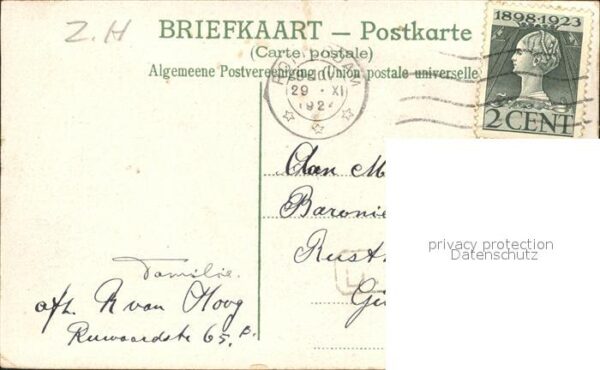 Z.H
BRIEFKAART — Postkarte
(Carte postale)
Algemeene Postvereeniging (Union postale universelle
1898-1923
2 CENT
29 · XI
Aan M
Baronie
Rusth
privacy protection
Datenschutz
Familie.
afz. R van Hoog
Ruwaardstr 65.B.